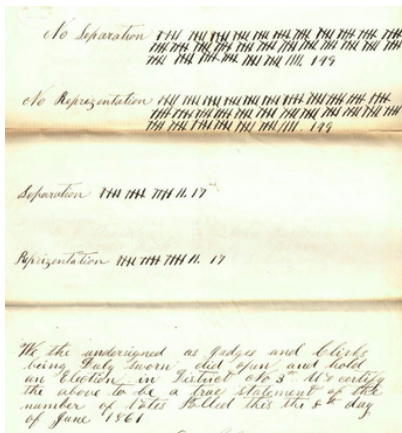 No Separation
149
No Reprizentation
149
Separation 17
Reprizentation 17
We the undersigned as Judges and Clirks
being Duly sworn did open and hold
an Election in District No 3rd We certify
the above to be a true statement of the
number of Votes Polled this the 8th day
of June 1861